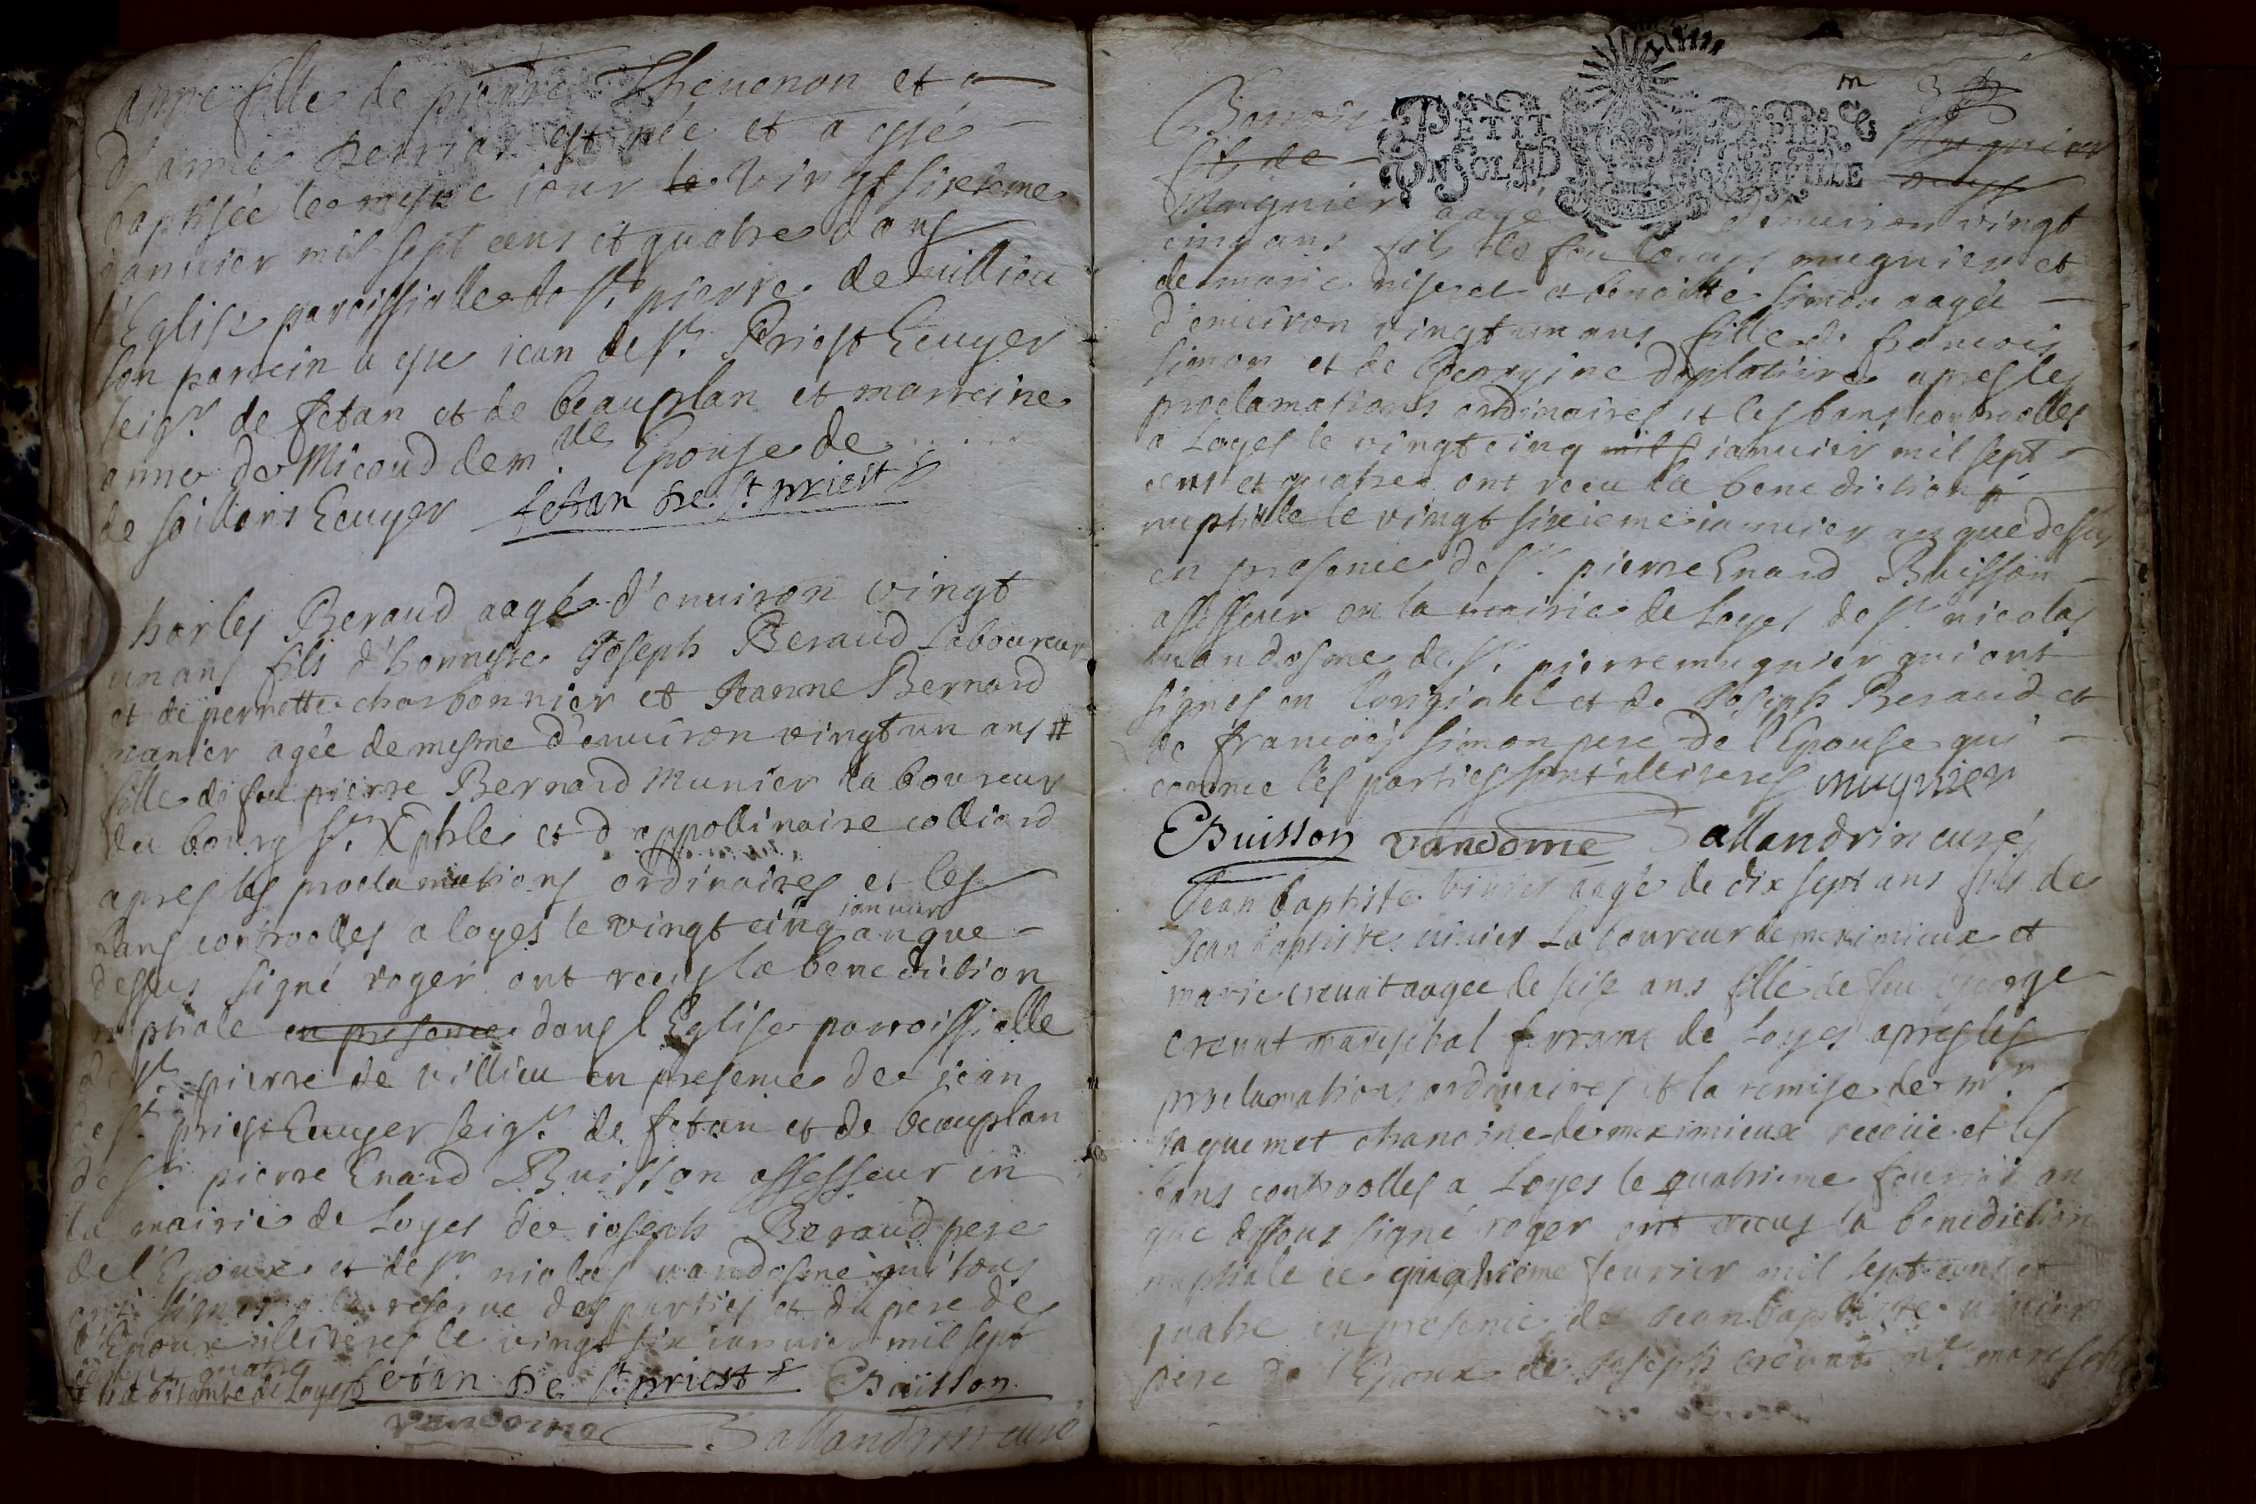 anne fille de pierre Thevenon et
d'année perrier est née et a esté
baptisée le mesme iour le vingt sixieme
ianuier mil sept cens et quatre dans
l'Eglise paroissialle de st. pierre de villieu
son parrein a esté iean de st. Priest Ecuyer
seigr. de fetan et de beauplan et marreine
anne de Micoud demlle Epouse de ......
de saillans Ecuyer fetan De. st. priest
harles Beraud aagé d'enuiron vingt
un ans fils d'honneste Joseph Beraud Laboureur
et de pernette charbonnier et Jeanne Bernard
manier agée de mesme d'enuiron vingt un ans #
fille de feu pierre Bernard Munier laboureur
du bourg st. Xphle et d'appollinaire colliard
apres les proclamations ordinaires et les
bans controolles a loyes le vingt cinq ianuier an que
dessus signé roger ont receus la benediction
nuptiale en presence dans l'Eglise parroissialle
de st. pierre de villieu en presence de jean
de st. priest Ecuyer seigr. de fetan et de beauplan
de sr. pierre Enard Buisson assesseur en
la mairie de Loyes de ioseph Beraud pere
del'Epoux et de sr. nicolas vandosme qui tous
ont signes a la reserue des parties et du pere de
l'Epoux illiteres le vingt six ianuier mil sept
cens quatre
fetan De st priest Buisson
vandome Ballandrin curé
PETIT PAPIER
Benois
fils de
mugnier
Mugnier aagé d'enuiron vingt
cinq ans fils de feu Louys mugnier et
de marie niseret et benoitte simon aagée
d'enuiron vingt un ans fille de francois
simon et de Perrine deplatiere apres les
proclamations ordinaires et les bans controolles
a Loyes le vingt cinq mil s ianuier mil sept
cens et quatre ont receu la benediction
nuptialle le vingt sixieme ianuier an que dessus
en presence de sr. pierre Enard Buisson
assesseur en la mairie de Loyes de sr. nicolas
vandosme de sr. pierre mugnier qui ont
signes en l'original et de Joseph Beraud et
de francois simon pere de l'Epouse qui
comme les parties sont illiteres mugnier
Buisson vandome Ballandrin curé
Jean baptiste vinier aagé de dix sept ans fils de
Jean baptiste vinier Laboureur de meximieux et
marie creuat aagée de seise ans fille de feu George
creuat mareschal ferrant de Loyes apres les
proclamations ordinaires et la remise de mr.
jaquemet chanoine de meximieux receüe et les
bans controolles a Loyes le quatrieme feurier an
que dessous signé roger ont receus la benediction
nuptiale ce quatrieme feurier mil sept cens et
quatre en presence de Jean baptiste vinier
pere de l'Epoux de Joseph creuat mareschal